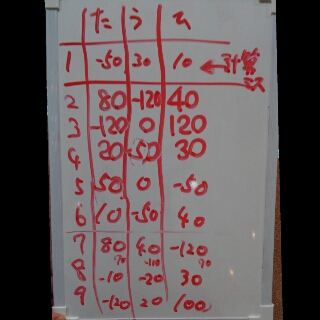 た う い
1 -50 30 10 ←計算ミス
2 80 -120 40
3 -120 0 120
4 20 -50 30
5 50 0 -50
6 10 -50 40
7 80 40 -120
8 -10 -20 30
9 -120 20 100